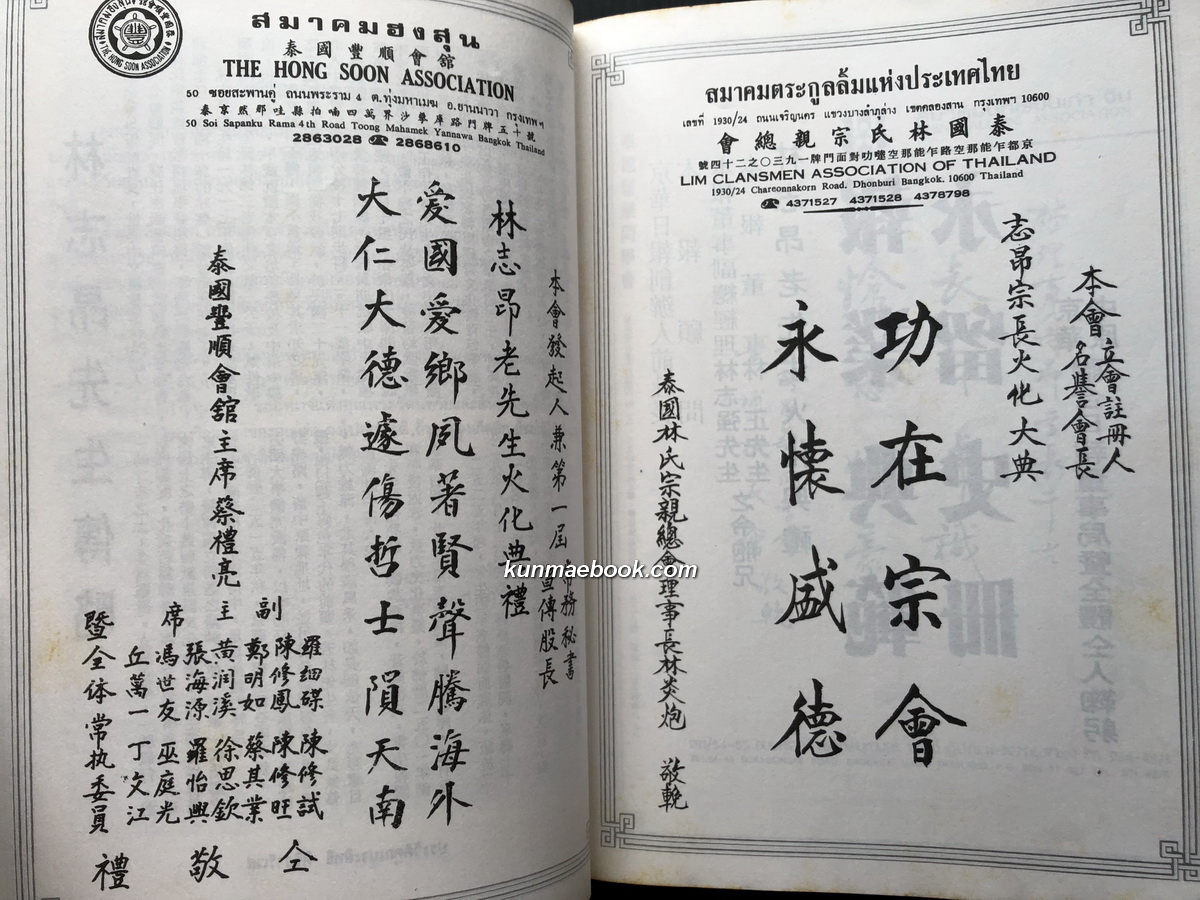 สมาคมฮงสุน
泰國豐順會舘
THE HONG SOON ASSOCIATION
50 ซอยสะพานคู่ ถนนพระราม 4 ต.ทุ่งมหาเมฆ อ.ยานนาวา กรุงเทพฯ
泰京然那哇縣拍喃四萬界沙攀庫路門牌五十號
50 Soi Sapanku Rama 4th Road Toong Mahamek Yannawa Bangkok Thailand
2863028 ☎ 2868610
本會發起人兼第一屆常務秘書
宣傳股長
林志昂老先生火化典禮
愛國愛鄉夙著賢聲騰海外
大仁大德遽傷哲士隕天南
泰國豐順會舘主席蔡禮亮
副主席
羅細碟 陳修試
陳修鳳 陳修旺
鄭明如 蔡其業
黃润溪 徐思欽
張海源 羅怡興
馮世友 巫庭光
丘萬一 丁文江
暨全体常执委員
仝敬禮
สมาคมตระกูลลิ้มแห่งประเทศไทย
เลขที่ 1930/24 ถนนเจริญนคร แขวงบางลำภูล่าง เขตคลองสาน กรุงเทพฯ 10600
泰國林氏宗親總會
京都乍能那空路乍能那空噠功對面門牌一九三〇之二十四號
LIM CLANSMEN ASSOCIATION OF THAILAND
1930/24 Chareonnakorn Road, Dhonburi Bangkok. 10600 Thailand
☎ 4371527 4371528 4378798
本會立會註冊人
名譽會長
志昂宗長火化大典
功在宗會
永懷盛德
泰國林氏宗親總會理事長林炎炮 敬輓
kunmaebook.com